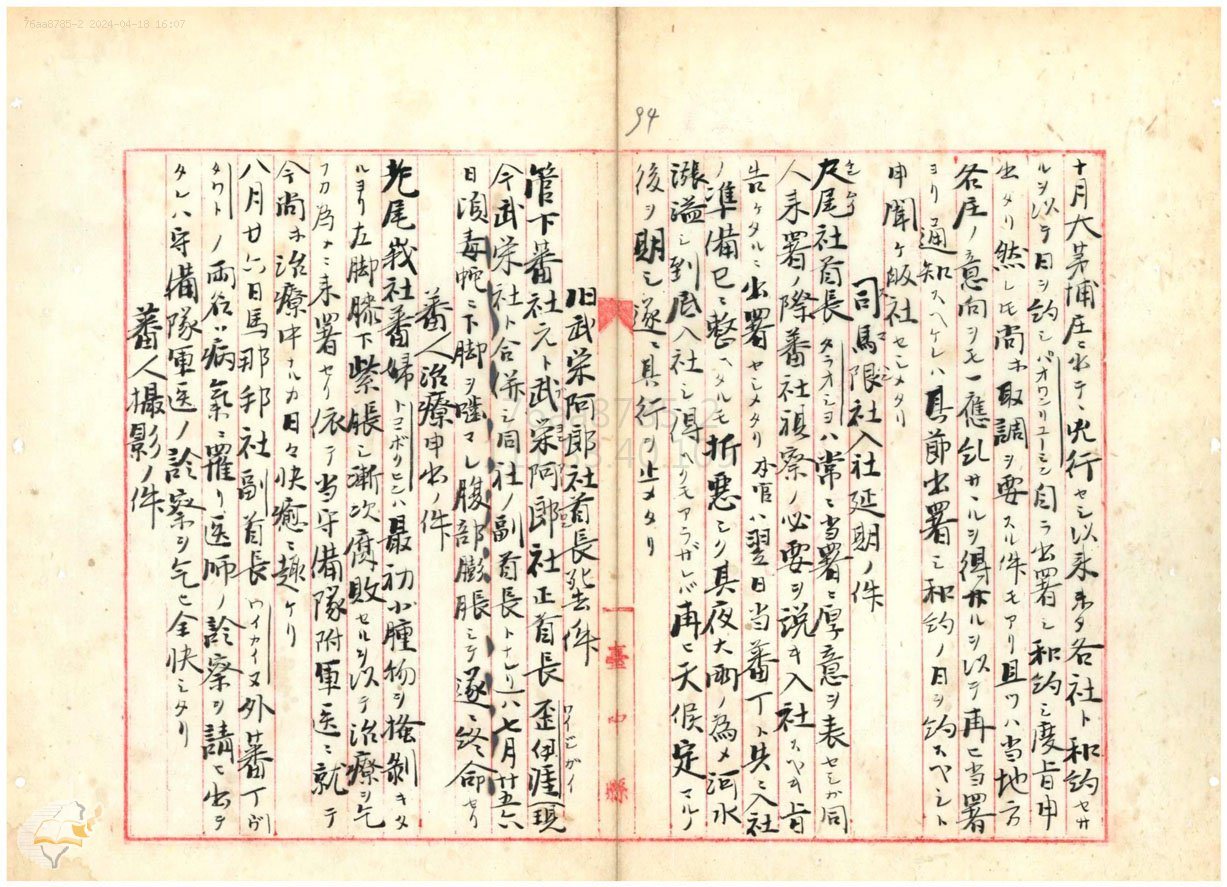 76aa8785-2 2024-04-18 16:07
94
十月大茅埔庄ニ出テ、兇行セシ以来未タ各社ト和約セサ
ルヲ以テ日ヲ約シバオワンリユーミン自ラ出署シ和約シ度旨申
出タリ然レ𪜈尚ホ取調ヲ要スル件モアリ且ツハ当地方
各庄ノ意向ヲモ一應糺サヽルヲ得サルヲ以テ再ヒ当署
ヨリ通知スヘケレハ其節出署シ和約ノ日ヲ約スヘシト
申聞ケ皈社セシメタリ
司馬限社入社延期ノ件
尾尾社酋長タラオシヨハ常ニ当署ニ厚意ヲ表セシガ同
人来署ノ際蕃社視察ノ必要ヲ説キ入社スヘキ旨
告ケタルニ出署セシメタリ本官ハ翌日当蕃丁ト共ニ入社
ノ準備已ニ整ヘタルモ折悪シク其夜大雨ノ為メ河水
漲溢シ到底入社シ得ヘクモアラザレバ再ヒ天候定マルノ
後ヲ期シ遂ニ其行ヲ止メタリ
旧武栄阿郎社酋長死去件
管下蕃社元ト武栄阿郎社正酋長歪伊唯(現
ワイシガイ
今武栄社ト合併シ同社ノ副酋長トナレリ)ハ七月廿五六
日頃毒蛇ニ下脚ヲ噬マレ腹部膨脹シテ遂ニ終命セリ
蕃人治療申出ノ件
老尾峩社蕃婦トヨボクヒンハ最初小腫物ヲ掻剝キタ
ルヨリ左脚膝下紫脹シ漸次腐敗セルヲ以テ治療ヲ乞
フカ為メニ来署セリ依テ当守備隊附軍医ニ就テ
今尚ホ治療中ナルカ日々快癒ニ趣ケリ
八月廿六日馬那邦社副酋長ワイカイ又外蕃丁ガ
タウトノ両名ハ病氣ニ罹リ医師ノ診察ヲ請ヒ出テ
タレハ守備隊軍医ノ診察ヲ乞ヒ全快シタリ
蕃人撮影ノ件
臺中縣